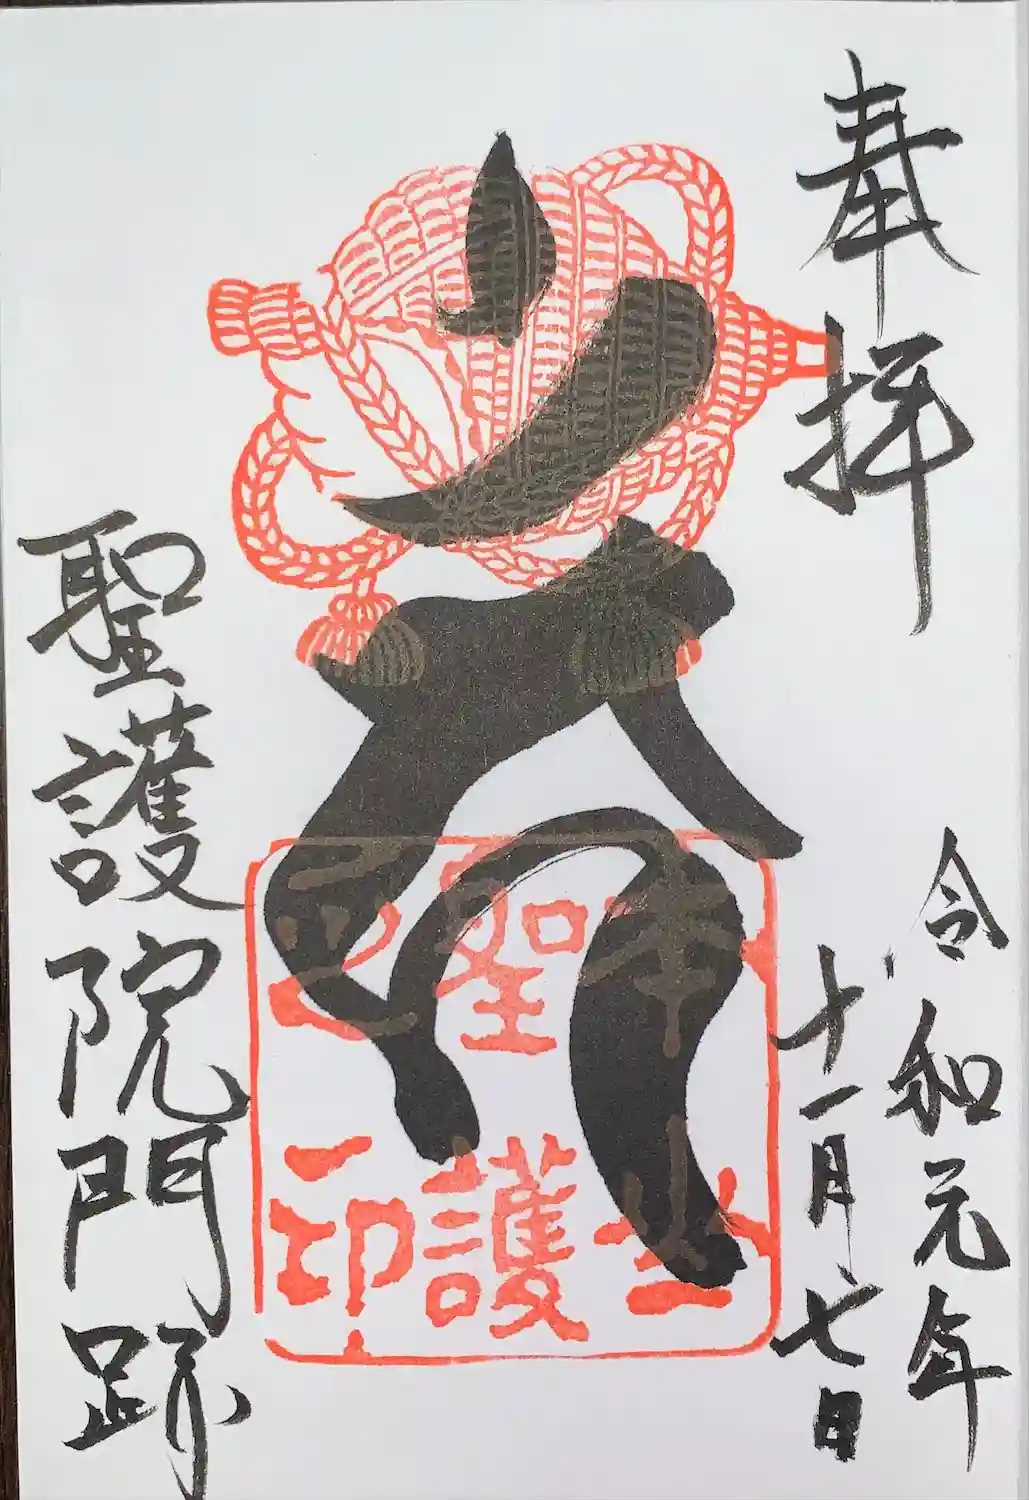 奉拝
令和元年
十一月七日
本山
聖護
印
聖護院門跡